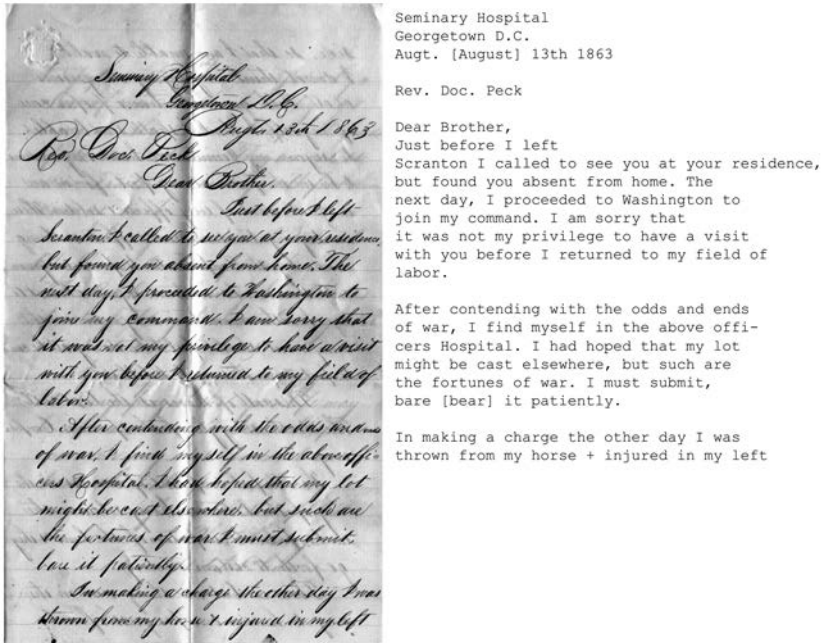 Seminary Hospital
Georgetown D.C.
Augt. 13th 1863
Rev. Doc. Peck
Dear Brother.
Just before I left
Scranton I called to see you at your residence,
but found you absent from home. The
next day, I proceeded to Washington to
join my command. I am sorry that
it was not my privilege to have a visit
with you before I returned to my field of
labor.
After contending with the odds and ends
of war, I find myself in the above offi-
cers Hospital. I had hoped that my lot
might be cast elsewhere, but such are
the fortunes of war. I must submit,
bare it patiently.
In making a charge the other day I was
thrown from my horse + injured in my left
Seminary Hospital
Georgetown D.C.
Augt. [August] 13th 1863
Rev. Doc. Peck
Dear Brother,
Just before I left
Scranton I called to see you at your residence,
but found you absent from home. The
next day, I proceeded to Washington to
join my command. I am sorry that
it was not my privilege to have a visit
with you before I returned to my field of
labor.
After contending with the odds and ends
of war, I find myself in the above offi-
cers Hospital. I had hoped that my lot
might be cast elsewhere, but such are
the fortunes of war. I must submit,
bare [bear] it patiently.
In making a charge the other day I was
thrown from my horse + injured in my left